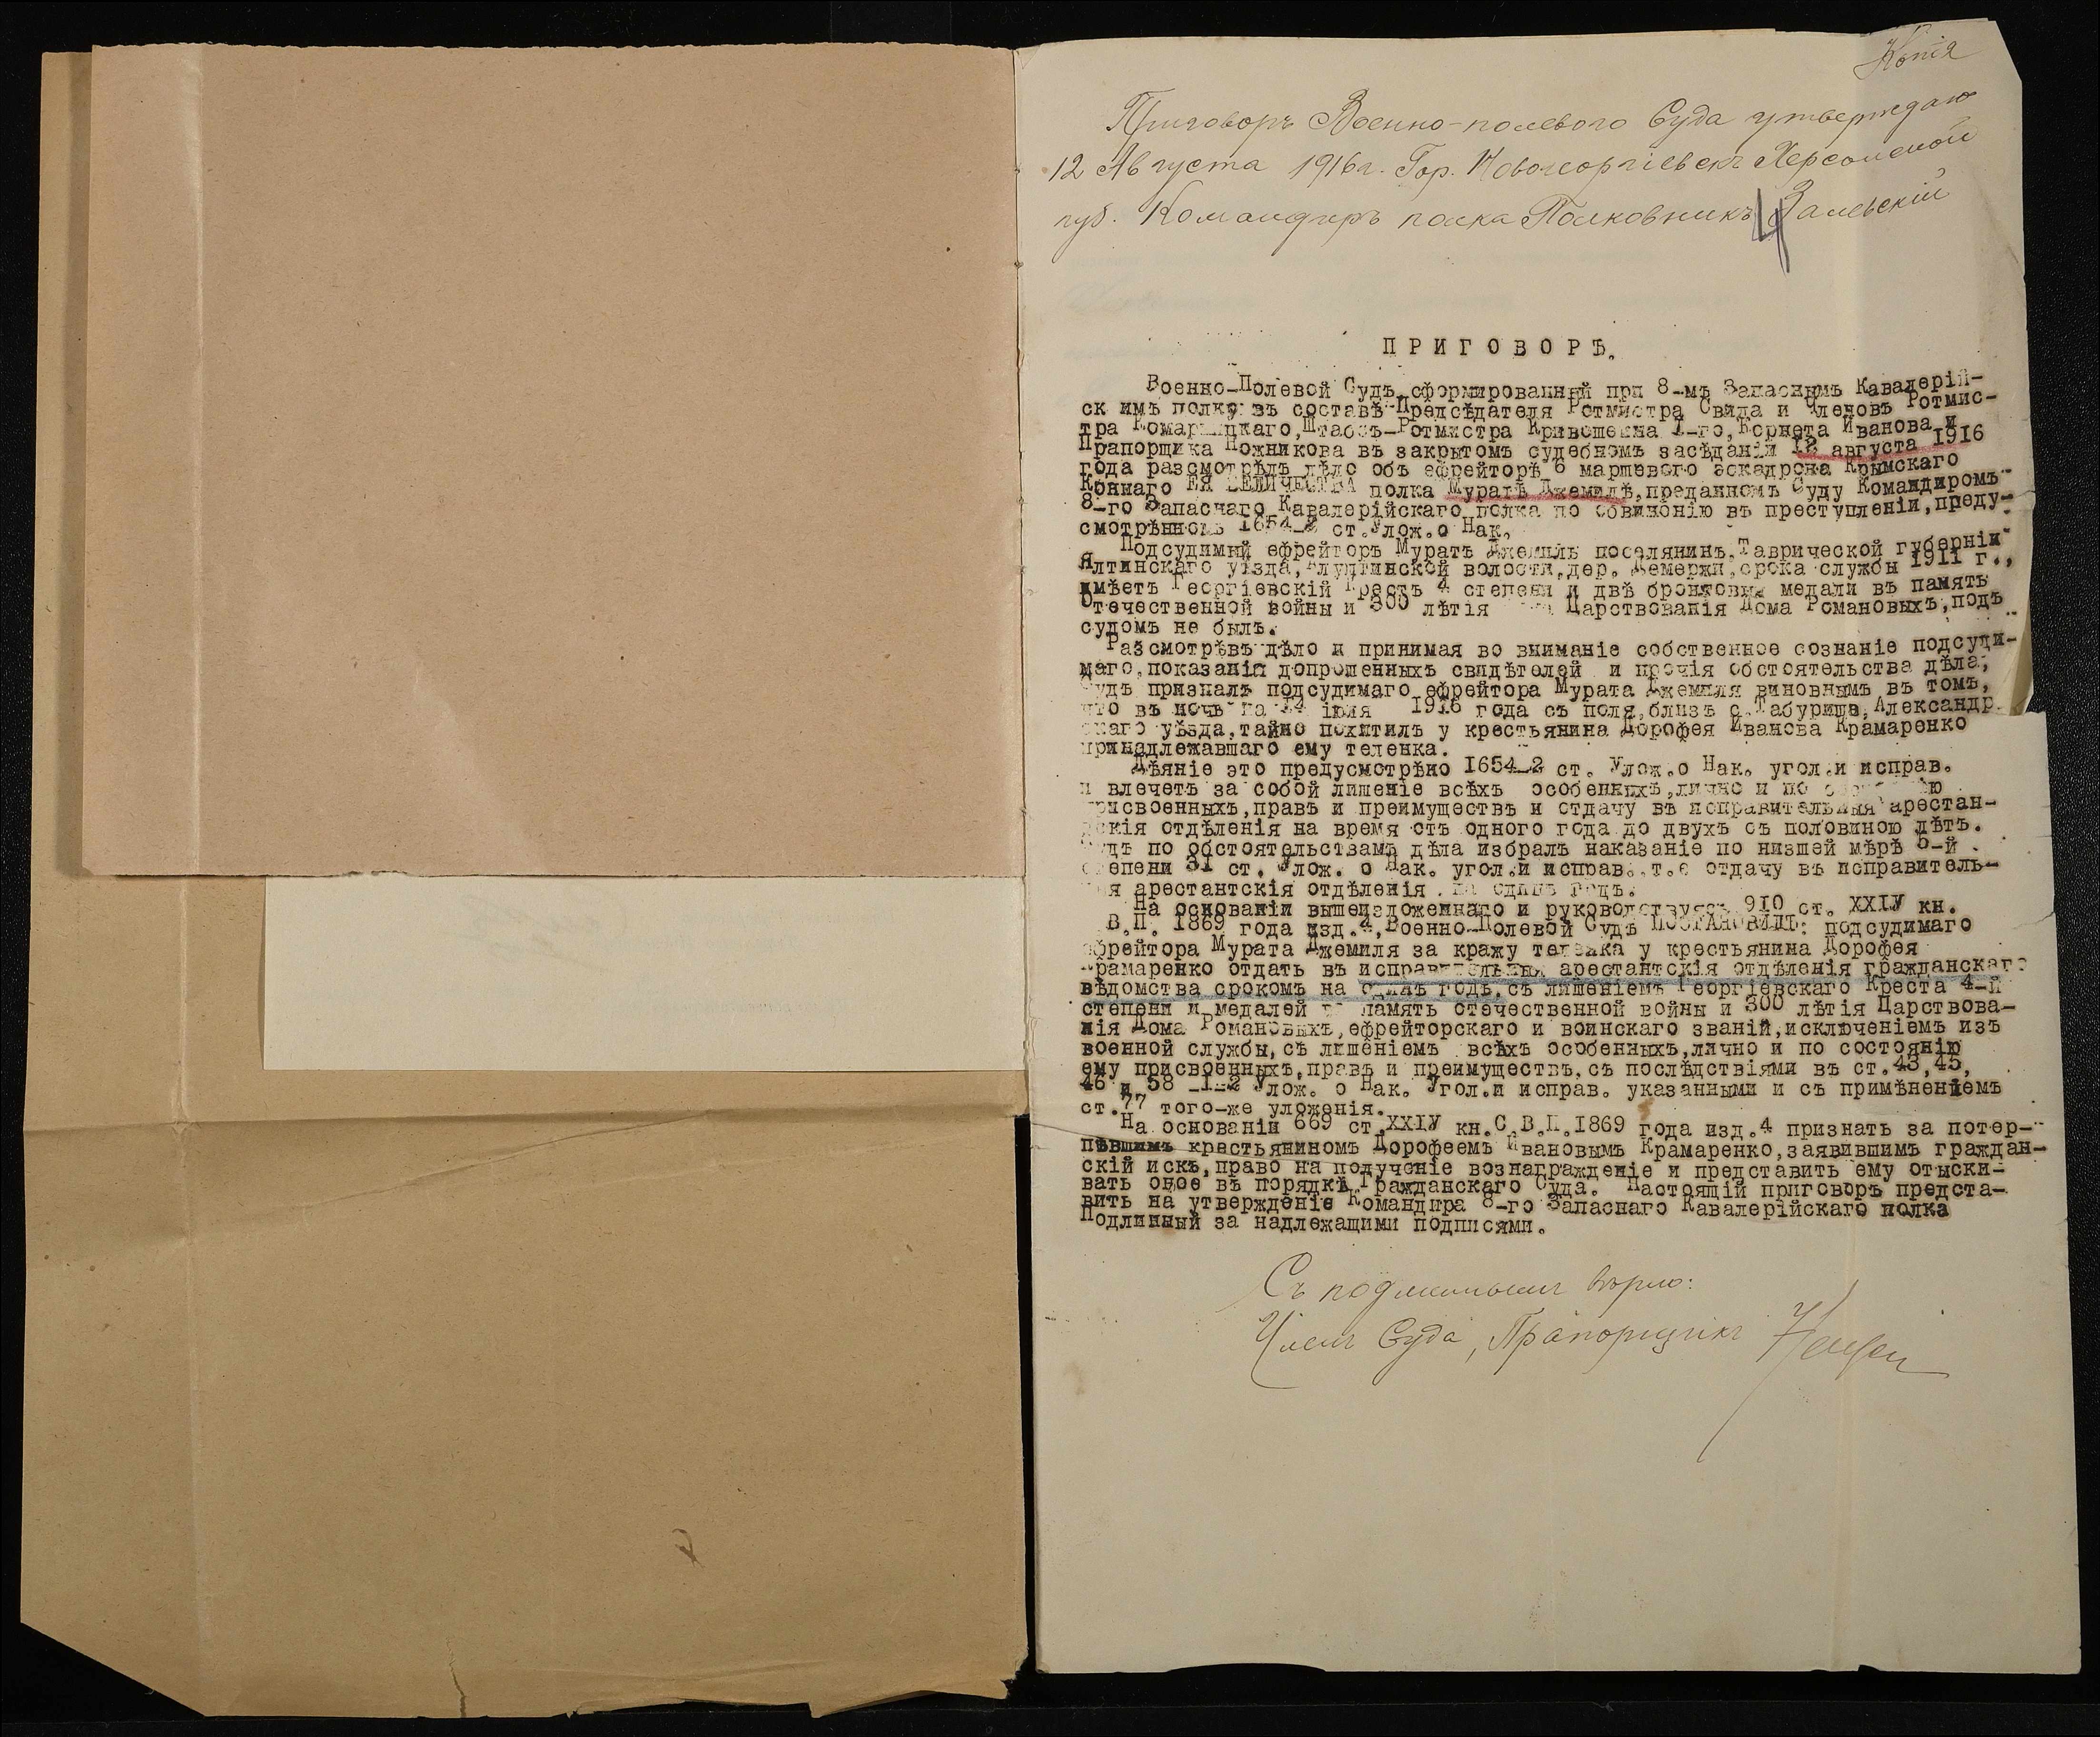 Копія
Приговоръ Военно-полевого Суда утверждаю
12 Августа 1916г. Гор. Новогеоргіевскъ Херсонской
губ. Командиръ полка Полковникъ Залевскій
4
ПРИГОВОРЪ.
Военно-Полевой Судъ, сформированный при 8-мъ Запаснымъ Кавалерій-
ск имъ полку въ составѣ Предсѣдателя Ротмистра Свида и Членовъ Ротмис-
тра Штабсъ-Ротмистра Кривошеина I-го, Корнета Иванова и
Прапорщика Ножникова въ закрытомъ судебномъ засѣданіи 12 августа 1916
года разсмотрѣлъ дѣло объ ефрейторѣ 6 маршевого эскадрона Крымскаго
Коннаго ЕЯ ВЕЛИЧЕСТВА полка Муратѣ Джемилѣ, преданномъ Суду Командиромъ
8-го Запаснаго Кавалерійскаго полка по обвинѳнію въ преступленіи, преду-
смотрѣнномъ 1654-2 ст. Улож. о Нак.
Подсудимый ефрейторъ Муратъ Джемиль поселянинъ, Таврической губерніи
Ялтинскаго уѣзда, Алуштинской волости, дер. Демержи, срока службы 1911 г.,
имѣетъ Георгіевскій Крестъ 4 степени и двѣ бронзовыя медали въ память
Отечественной войны и 300 лѣтія Царствованія Дома Романовыхъ, подъ
судомъ не былъ.
Разсмотрѣвъ дѣло и принимая во вниманіе собственное сознаніе подсуди-
маго, показанія допрошенныхъ свидѣтелей и прочія обстоятельства дѣла,
Судъ призналъ подсудимаго ефрейтора Мурата Джемиля виновнымъ въ томъ,
что въ ночь на 1916 года съ поля, близъ с. Табурище, Александр
скаго уѣзда, тайно похитилъ у крестьянина Дорофея Иванова Крамаренко
принадлежавшаго ему теленка.
Дѣяніе это предусмотрѣно 1654-2 ст. Улож. о Нак. угол. и исправ.
и влечетъ за собой лишеніе всѣхъ особенныхъ, лично и по
присвоенныхъ, правъ и преимуществъ и отдачу въ исправительныя арестан-
скія отдѣленія на время отъ одного года до двухъ съ половиною лѣтъ.
Судъ по обстоятельствамъ дѣла избралъ наказаніе по низшей мѣрѣ 5-й
степени 31 ст. Улож. о Нак. угол. и исправ. т.е отдачу въ исправитель-
я арестантскія отдѣленія на одинъ годъ.
На основаніи вышеизложеннаго и руководствуясь 910 ст. XXIУ кн.
В.П. 1869 года изд. 4, Военно-Полевой Судъ ПОСТАНОВИЛЪ: подсудимаго
ефрейтора Мурата Джемиля за кражу теленка у крестьянина Дорофея
Крамаренко отдать въ исправительныя арестантскія отдѣленія гражданскаго
вѣдомства срокомъ на одинъ годъ, съ лишеніемъ Георгіевскаго Креста 4-й
степени и медалей въ память отечественной войны и 300 лѣтія Царствова-
нія Дома Романовыхъ, ефрейторскаго и воинскаго званій, исключеніемъ изъ
военной службы, съ лишеніемъ всѣхъ особенныхъ, лично и по состоянію
ему присвоенныхъ, правъ и преимуществъ, съ послѣдствіями въ ст. 43, 45,
46 и 58 -1-2 Улож. о Нак. Угол. и исправ. указанными и съ примѣненіемъ
ст. 77 того-же уложенія.
На основаніи 669 ст. XXIУ кн. С.В.П. 1869 года изд. 4 признать за потер-
пѣвшимъ крестьяниномъ Дорофеемъ Ивановымъ Крамаренко, заявившимъ граждан-
скій искъ, право на полученіе вознагражденіе и представить ему отыски-
вать оное въ порядкѣ Гражданскаго Суда. Настоящій приговоръ предста-
вить на утвержденіе Командира 8-го Запаснаго Кавалерійскаго полка
Подлинный за надлежащими подписями.
Съ подлиннымъ вѣрно:
Членъ Суда, Прапорщикъ